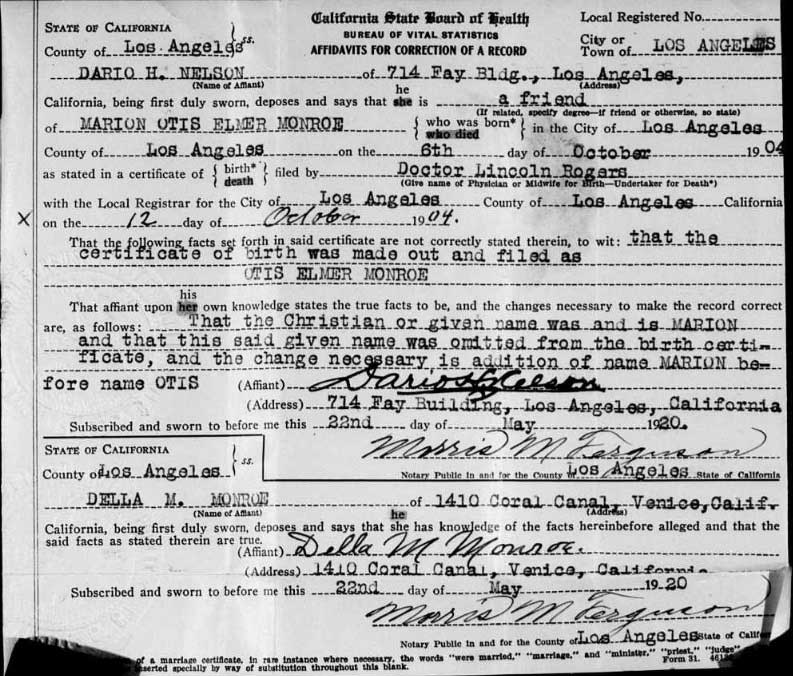 California State Board of Health
BUREAU OF VITAL STATISTICS
AFFIDAVITS FOR CORRECTION OF A RECORD
Local Registered No.
STATE OF CALIFORNIA
County of Los Angeles ss.
City or Town of LOS ANGELES
DARIO H. NELSON of 714 Fay Bldg., Los Angeles,
(Name of Affiant) (Address)
he
California, being first duly sworn, deposes and says that she is a friend
(If related, specify degree—if friend or otherwise, so state)
of MARION OTIS ELMER MONROE { who was born* who died } in the City of Los Angeles
County of Los Angeles on the 6th day of October 1904
as stated in a certificate of { birth* death } filed by Doctor Lincoln Rogers
(Give name of Physician or Midwife for Birth—Undertaker for Death*)
with the Local Registrar for the City of Los Angeles County of Los Angeles California
X on the 12 day of October 1904.
That the following facts set forth in said certificate are not correctly stated therein, to wit: that the
certificate of birth was made out and filed as
OTIS ELMER MONROE
his
That affiant upon her own knowledge states the true facts to be, and the changes necessary to make the record correct
are, as follows: That the Christian or given name was and is MARION
and that this said given name was omitted from the birth certi-
ficate, and the change necessary is addition of name MARION be-
fore name OTIS (Affiant) Dario H Nelson
(Address) 714 Fay Building, Los Angeles, California
Subscribed and sworn to before me this 22nd day of May 1920.
Morris M Ferguson
Notary Public in and for the County of Los Angeles State of California
STATE OF CALIFORNIA
County of Los Angeles ss.
DELLA M. MONROE of 1410 Coral Canal, Venice, Calif.
(Name of Affiant) (Address)
he
California, being first duly sworn, deposes and says that she has knowledge of the facts hereinbefore alleged and that the
said facts as stated therein are true.
(Affiant) Della M Monroe.
(Address) 1410 Coral Canal, Venice, California
Subscribed and sworn to before me this 22nd day of May 1920
Morris M Ferguson
Notary Public in and for the County of Los Angeles State of Califor
of a marriage certificate, in rare instance where necessary, the words "were married," "marriage," and "minister," "priest," "judge"
inserted specially by way of substitution throughout this blank. Form 31.